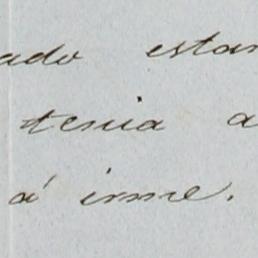 ado estan
tenia a
á irme.